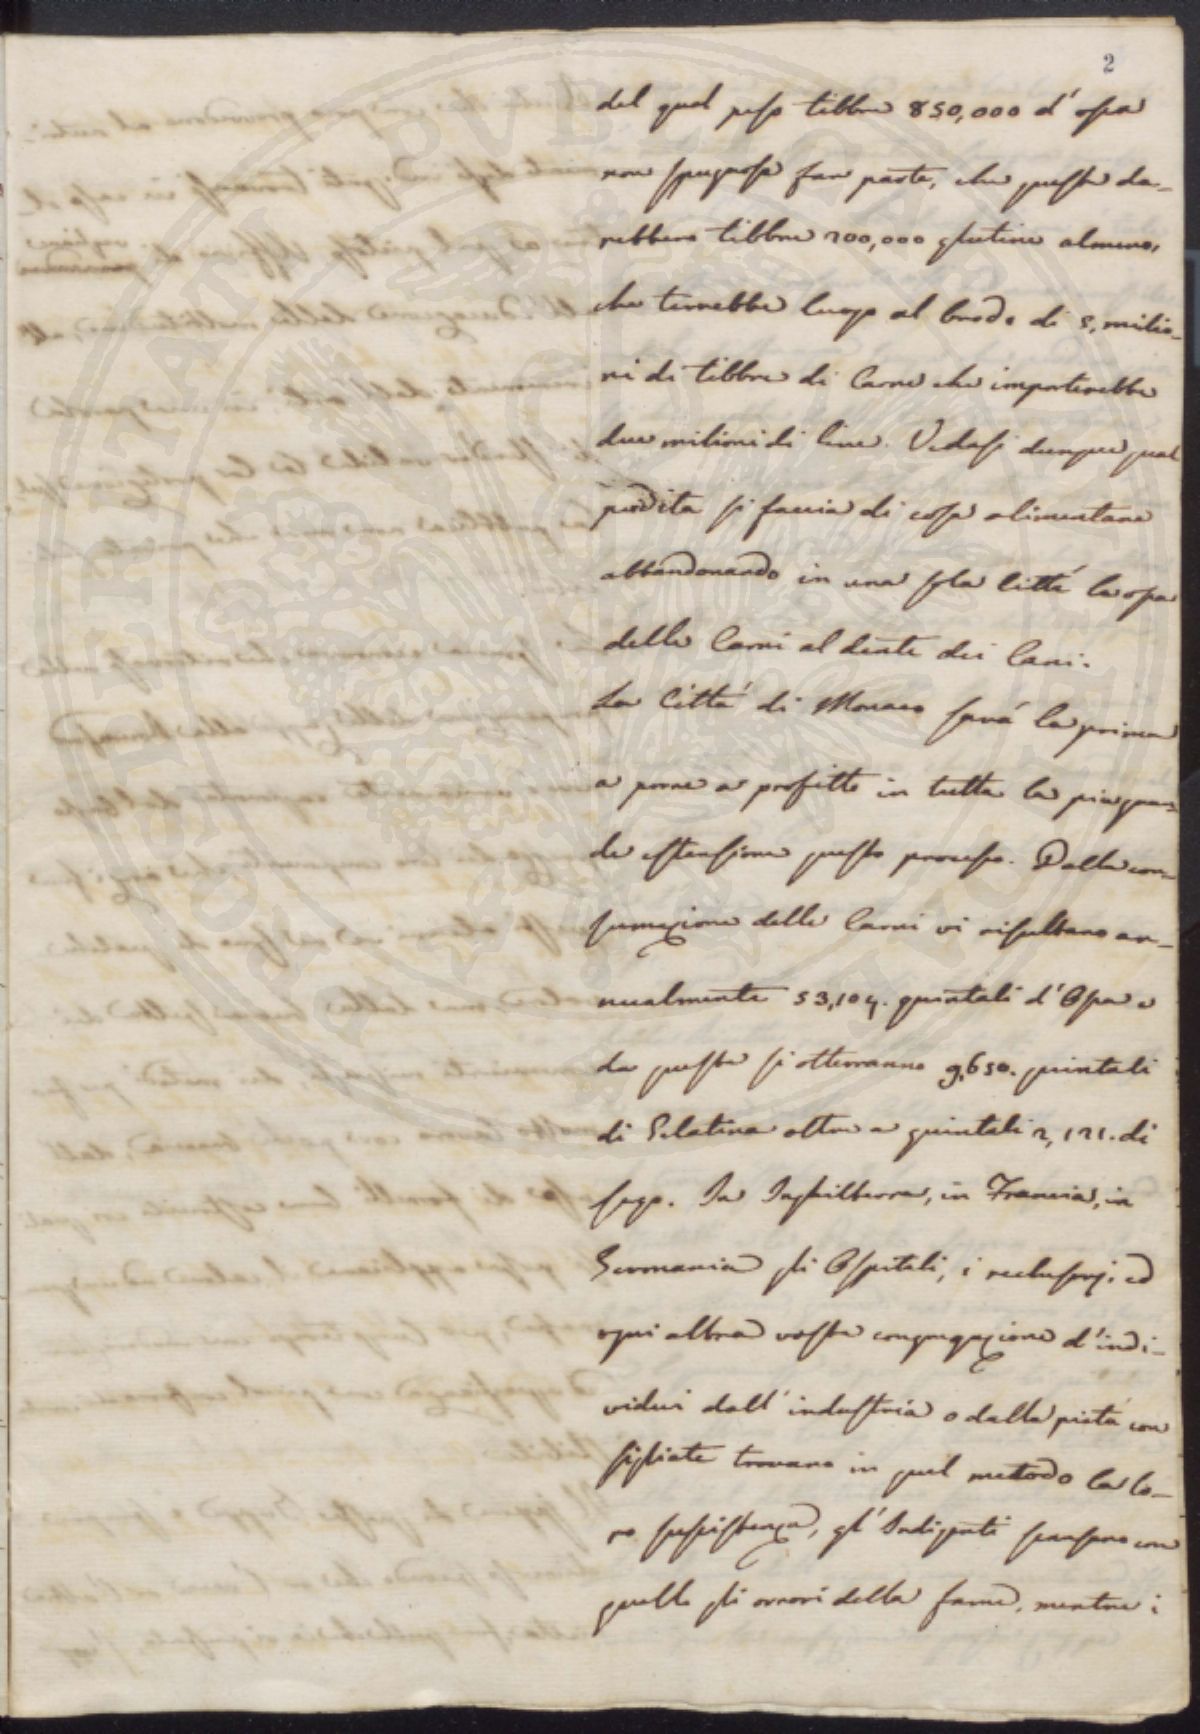 2
del qual peso libbre 850,000 d'ossa
non spugnose fan parte, che queste da-
rebbero libbre 200,000 glutine almeno,
che terrebbe luogo al brodo di 5, milio-
ni di libbre di Carne che importerebbe
due milioni di lire. Vedasi dunque qual
perdita si faccia di cosa alimentare
abbandonando in una sola Città le ossa
delle Carni al dente dei Cani.
La Città di Monaco sarà la prima
a porre a profitto in tutta la più gran-
de estensione questo processo. Dalla con-
sumazione delle Carni vi risultano an-
nualmente 53,104. quintali d'Ossa e
da queste si otterranno 9,650. quintali
di Gelatina oltre a quintali 2,121. di
sego. In Inghilterra, in Francia, in
Germania gli Ospitali, i reclusorj, ed
ogni altra vasta congregazione d'indi-
vidui dall'industria o dalla pietà con
sigliate trovano in quel metodo la lo-
ro sussistenza, gl'Indigenti scansano con
quello gli orrori della fame, mentre i